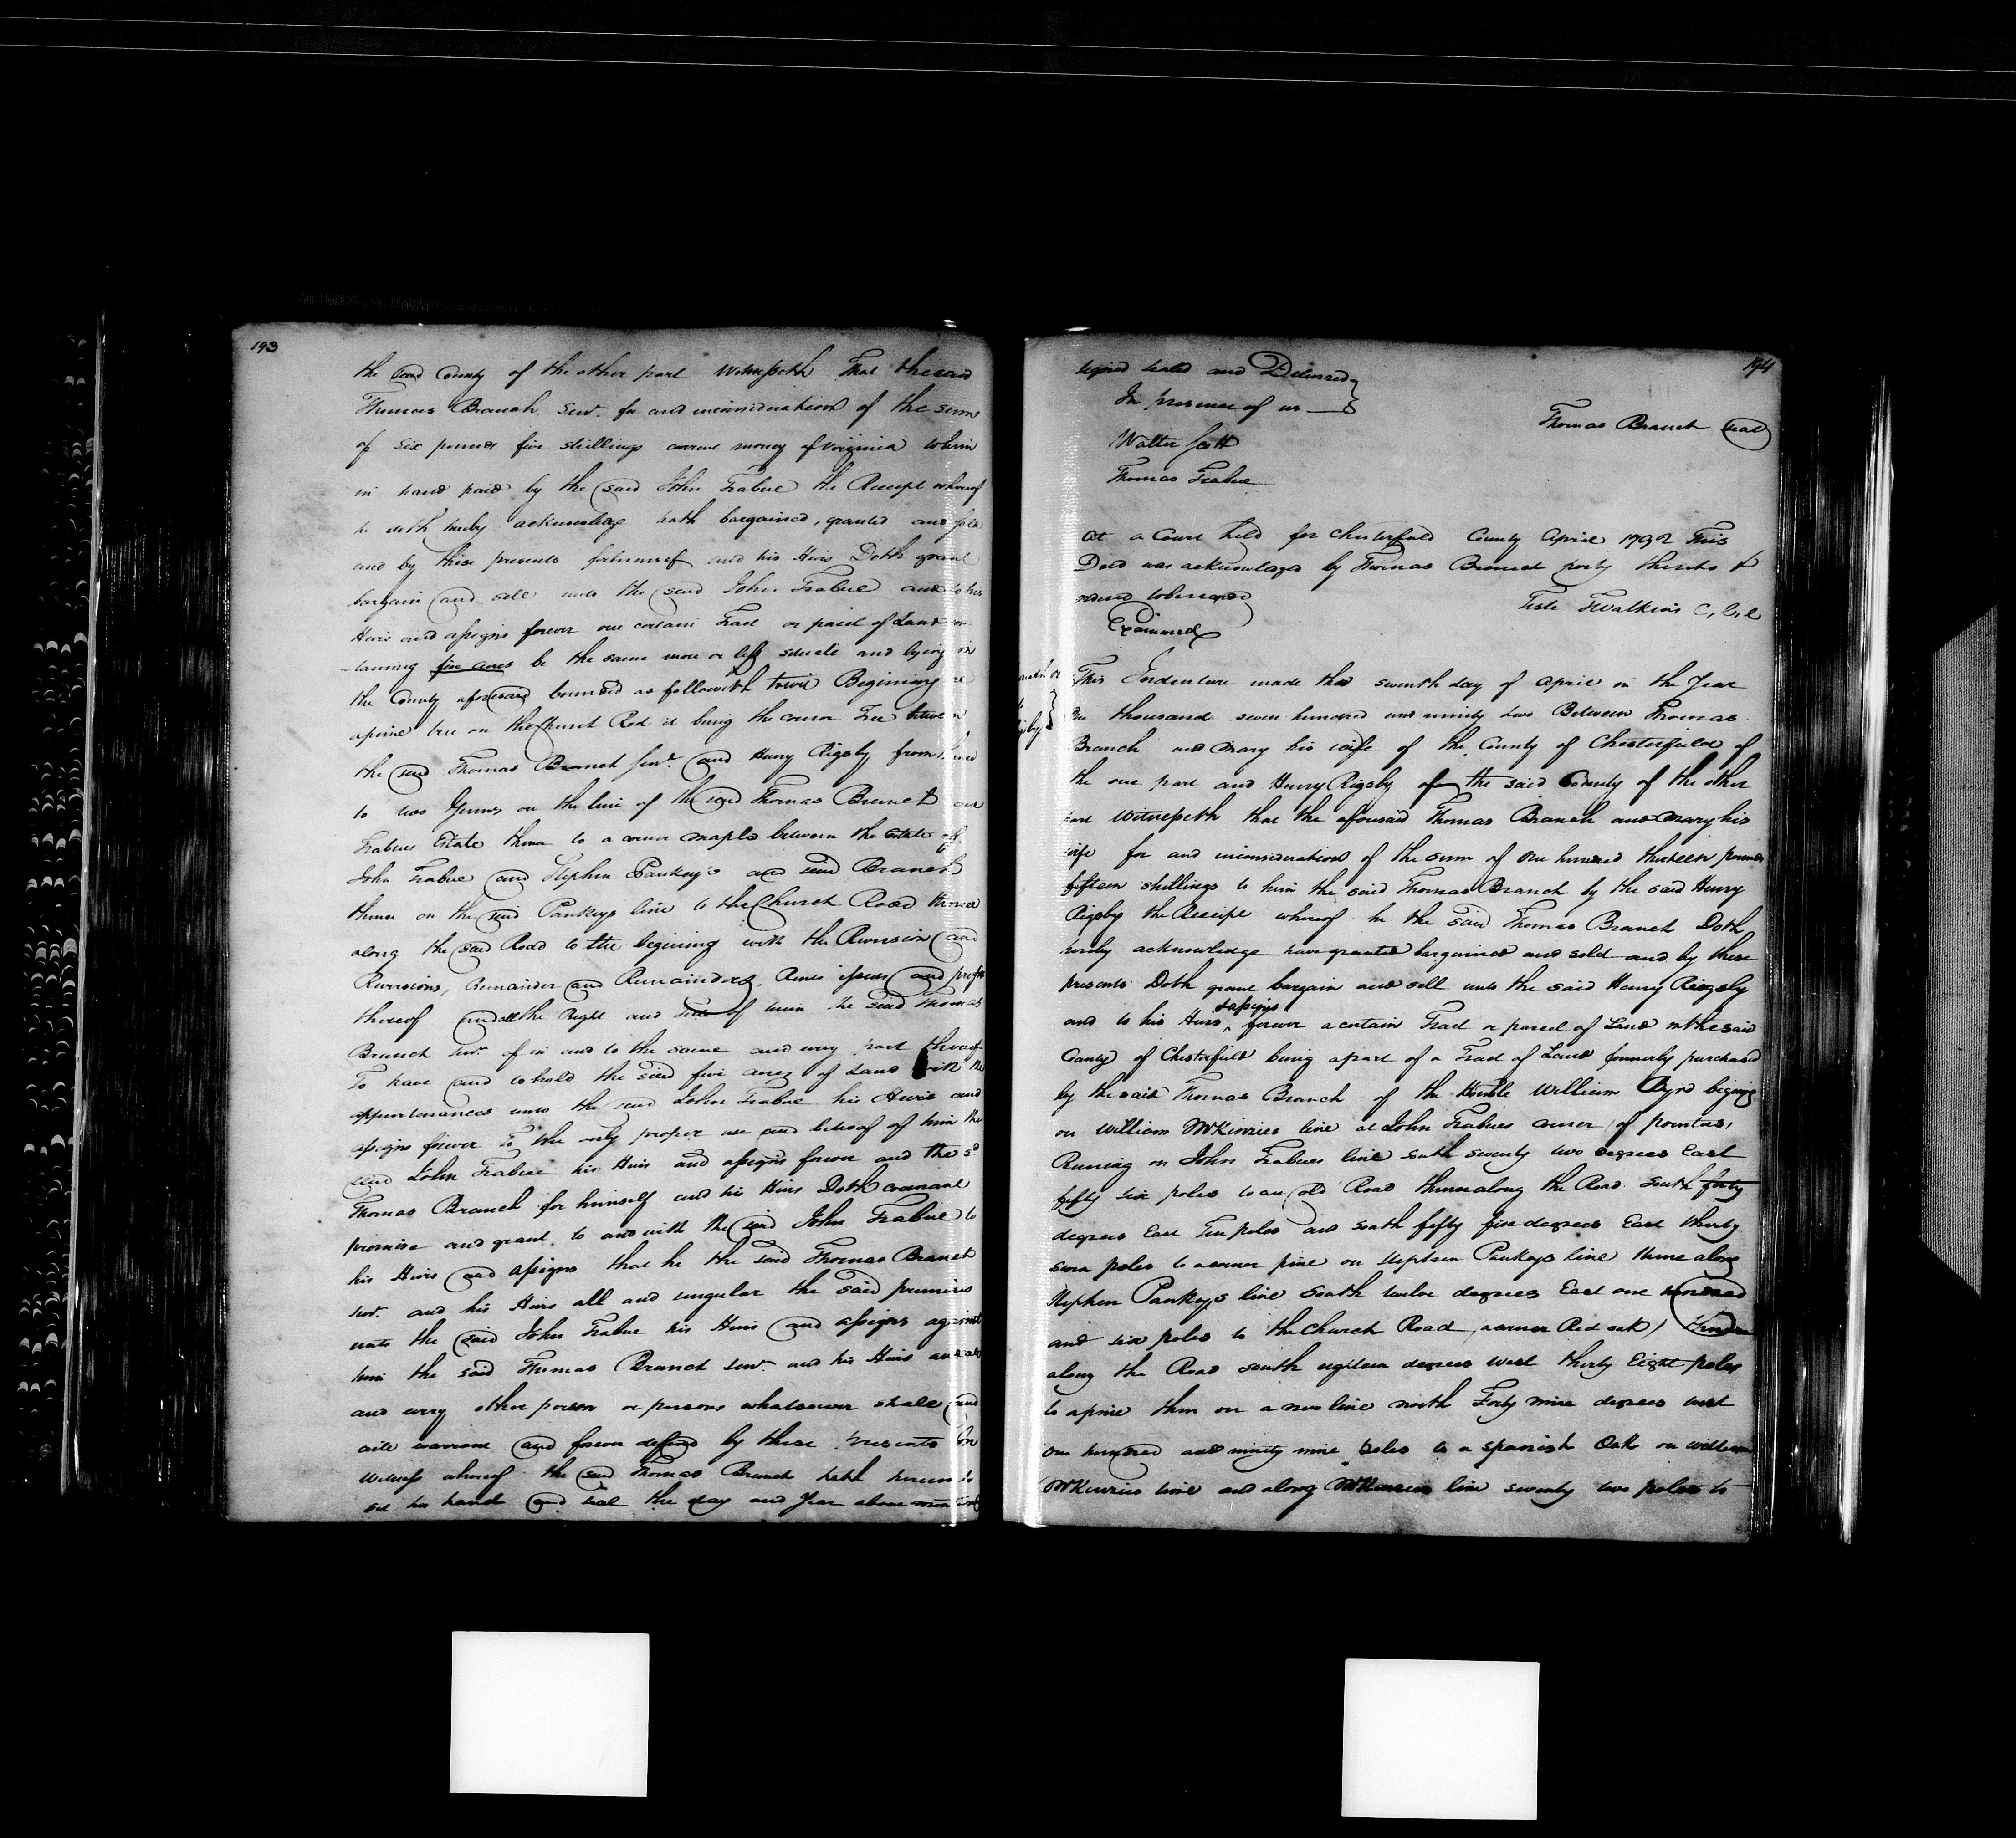 193
the said County of the other part Witnesseth That the said
Thomas Branch Senr. for and inconsideration of the sum
of six pounds five shillings current money of Virginia to him
in hand paid by the said John Trabue the Receipt whereof
he doth hereby acknowledge hath bargained, granted and sold
and by these presents for himself and his Heirs Doth grant
bargain and sell unto the said John Trabue and to his
Heirs and assigns forever one certain Tract or parcel of Land con
-taining five acres be the same more or less situate and lying in
the County aforesaid bounded as followeth towit Begining at
a pine tree on the Church Road it being the corner Tree between
the said Thomas Branch Senr. and Henry Rigsby from thence
to two Gums on the line of the said Thomas Branch and
Trabues Estate thence to a corner maple between the Estate of
John Trabue and Stephen Pankey's and said Branch
thence on the said Pankeys line to the Church Road thence
along the said Road to the begining with the Reversion and
Reversions, Remainder and Remainders, Rents issues and profits
thereof and all the Right and Title of him the said Thomas
Branch Senr. of in and to the same and every part thereof
To have and to hold the said five acres of Land with the
appurtenances unto the said John Trabue his Heirs and
assigns forever To the only proper use and behoof of him the
said John Trabue his Heirs and assigns forever and the sd
Thomas Branch for himself and his Heirs Doth covenant
promise and grant to and with the said John Trabue to
his Heirs and assigns that he the said Thomas Branch
Senr. and his Heirs all and singular the said premises
unto the said John Trabue his Heirs and assigns against
him the said Thomas Branch Senr. and his Heirs and all
and every other person or persons whatsoever shall and
will warrant and forever defend by these presents In
Witness whereof the said Thomas Branch hath hereunto
set his hand and seal the day and year above mentioned
194
signed sealed and Delivered
In presence of us
Thomas Branch seal
Walter Scott
Thomas Trabue
At a Court held for Chesterfield County April 1792 This
Deed was acknowledged by Thomas Branch party thereto &
ordered to be recorded
Teste TWatkins C, C, C
Examined
This Indenture made this seventh day of April in the Year
One thousand seven hundred and ninety two Between Thomas
Branch and Mary his wife of the County of Chesterfield of
the one part and Henry Rigsby of the said County of the other
part Witnesseth that the aforesaid Thomas Branch and Mary his
wife for and inconsideration of the sum of one hundred thirteen pounds
fifteen shillings to him the said Thomas Branch by the said Henry
Rigsby the Receipt whereof he the said Thomas Branch Doth
hereby acknowledge have granted bargained and sold and by these
presents Doth grant bargain and sell unto the said Henry Rigsby
and to his Heirs &assigns forever a certain Tract or parcel of Land in the said
County of Chesterfield being a part of a Tract of Land formerly purchased
by the said Thomas Branch of the Honble William Byrd begining
on William McKinzies line at John Trabues corner (of pointers,
Runing on John Trabues line south seventy two degrees East
fifty six poles to an old Road thence along the Road south forty
degrees East Ten poles and south fifty five degrees East thirty
seven poles to a corner pine on Stephen Pankeys line thence along
Stephen Pankeys line South twelve degrees East one hundred
and six poles to the Church Road, a corner Red oak) thence
along the Road south eighteen degrees West thirty Eight poles
to a pine then on a new line north Forty nine degrees west
one hundred and ninety nine poles to a spanish Oak on William
McKinzies line and along McKinzies line seventy two poles to